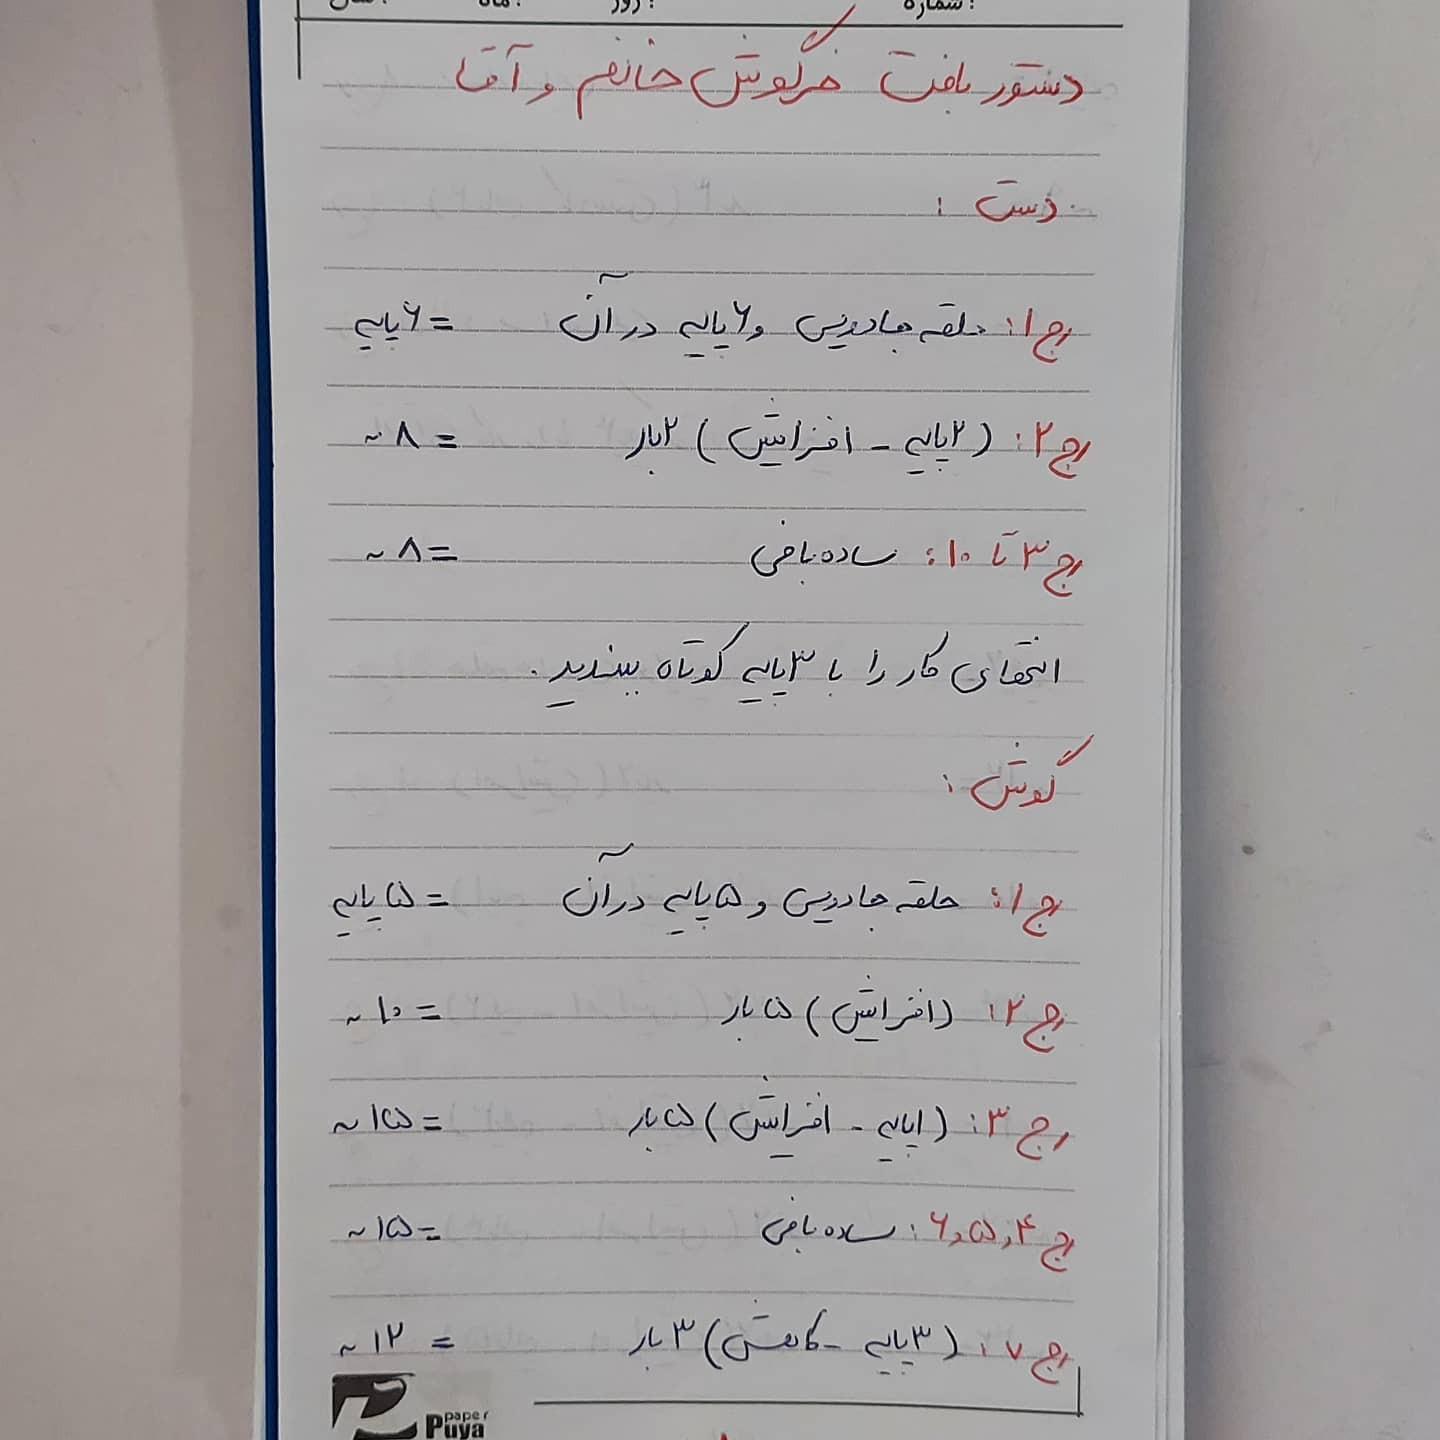 شماره : روز : ماه : سال :
دستور بافت خرگوش خانم و آقا
دست :
رج ۱: حلقه جادویی و ۶ پایه در آن = ۶ پایه
رج ۲: (۲ پایه - افزایش) ۲ بار = ۸ ~
رج ۳ تا ۱۰: ساده بافی = ۸ ~
انتهای کار را با ۳ پایه کوتاه ببندید.
گوش :
رج ۱: حلقه جادویی و ۵ پایه در آن = ۵ پایه
رج ۲: (افزایش) ۵ بار = ۱۰ ~
رج ۳: (۱ پایه - افزایش) ۵ بار = ۱۵ ~
رج ۴، ۵، ۶: ساده بافی = ۱۵ ~
رج ۷: (۳ پایه - کاهش) ۳ بار = ۱۲ ~
paper
Puya